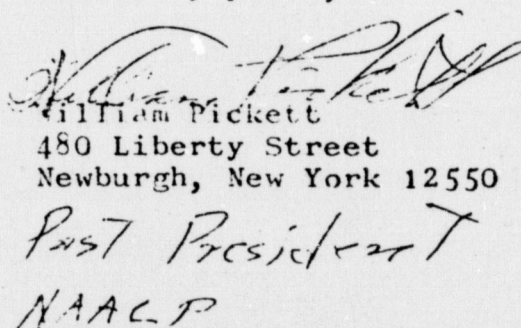 William Pickett
William Pickett
480 Liberty Street
Newburgh, New York 12550
Past President
NAACP